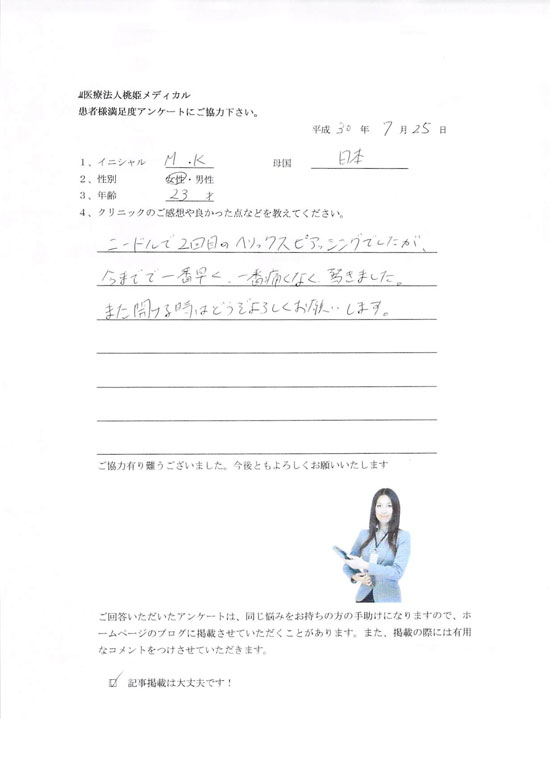 医療法人桃姫メディカル
患者様満足度アンケートにご協力下さい。
平成 30 年 7 月 25 日
1、イニシャル M.K 母国 日本
2、性別 女性・男性
3、年齢 23 才
4、クリニックのご感想や良かった点などを教えてください。
ニードルで2回目のヘリックスピアッシングでしたが、
今までで一番早く、一番痛くなく、驚きました。
また開ける時はどうぞよろしくお願いします。
ご協力有り難うございました。今後ともよろしくお願いいたします
ご回答いただいたアンケートは、同じ悩みをお持ちの方の手助けになりますので、ホ
ームページのブログに掲載させていただくことがあります。また、掲載の際には有用
なコメントをつけさせていただきます。
☑ 記事掲載は大丈夫です！